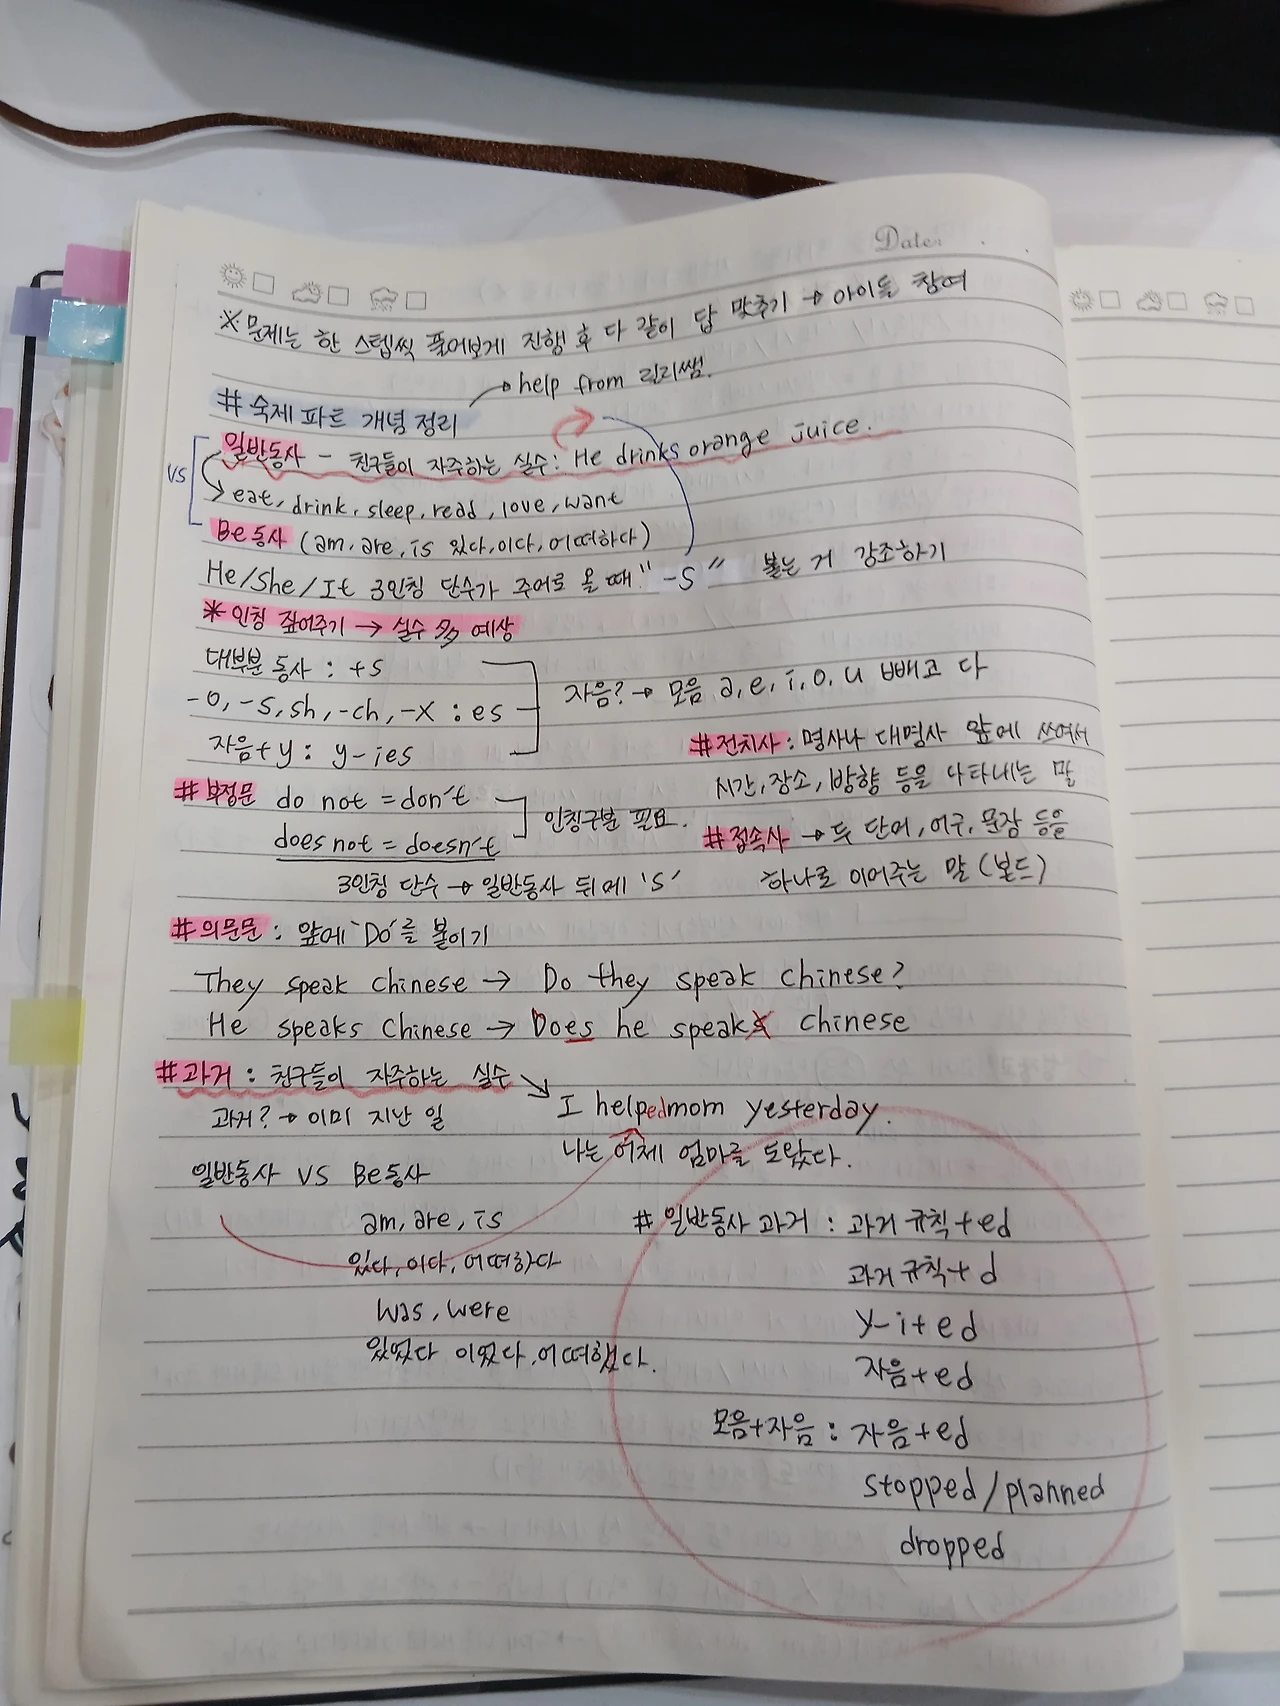 Date:
※문제는 한 스텝씩 풀어보게 진행 후 다 같이 답 맞추기 → 아이들 참여
→ help from 릴리쌤.
# 숙제 파트 개념 정리
일반동사 - 친구들이 자주하는 실수: He drinks orange juice.
vs
→ eat, drink, sleep, read, love, want
Be동사 (am, are, is 있다, 이다, 어떠하다)
He/She/It 3인칭 단수가 주어로 올 때 "-S" 붙는 거 강조하기
* 인칭 짚어주기 → 실수 多 예상
대부분 동사 : +s
-o, -s, sh, -ch, -x : es
자음+y : y-ies
자음? → 모음 a, e, i, o, u 빼고 다
#전치사 : 명사나 대명사 앞에 쓰여서
시간, 장소, 방향 등을 나타내는 말
#접속사 → 두 단어, 어구, 문장 등을
하나로 이어주는 말 (본드)
# 부정문 do not = don't
does not = doesn't
인칭구분 필요.
3인칭 단수 → 일반동사 뒤에 's'
# 의문문 : 앞에 'Do'를 붙이기
They speak chinese → Do they speak chinese?
He speaks Chinese → Does he speaks chinese
#과거 : 친구들이 자주하는 실수
→ I helped mom yesterday.
과거? → 이미 지난 일
나는 어제 엄마를 도왔다.
일반동사 VS Be동사
am, are, is
있다, 이다, 어떠하다
was, were
있었다 이었다, 어떠했다.
# 일반동사 과거 : 과거 규칙+ed
과거 규칙+d
y-i+ed
자음+ed
모음+자음 : 자음+ed
stopped/planned
dropped